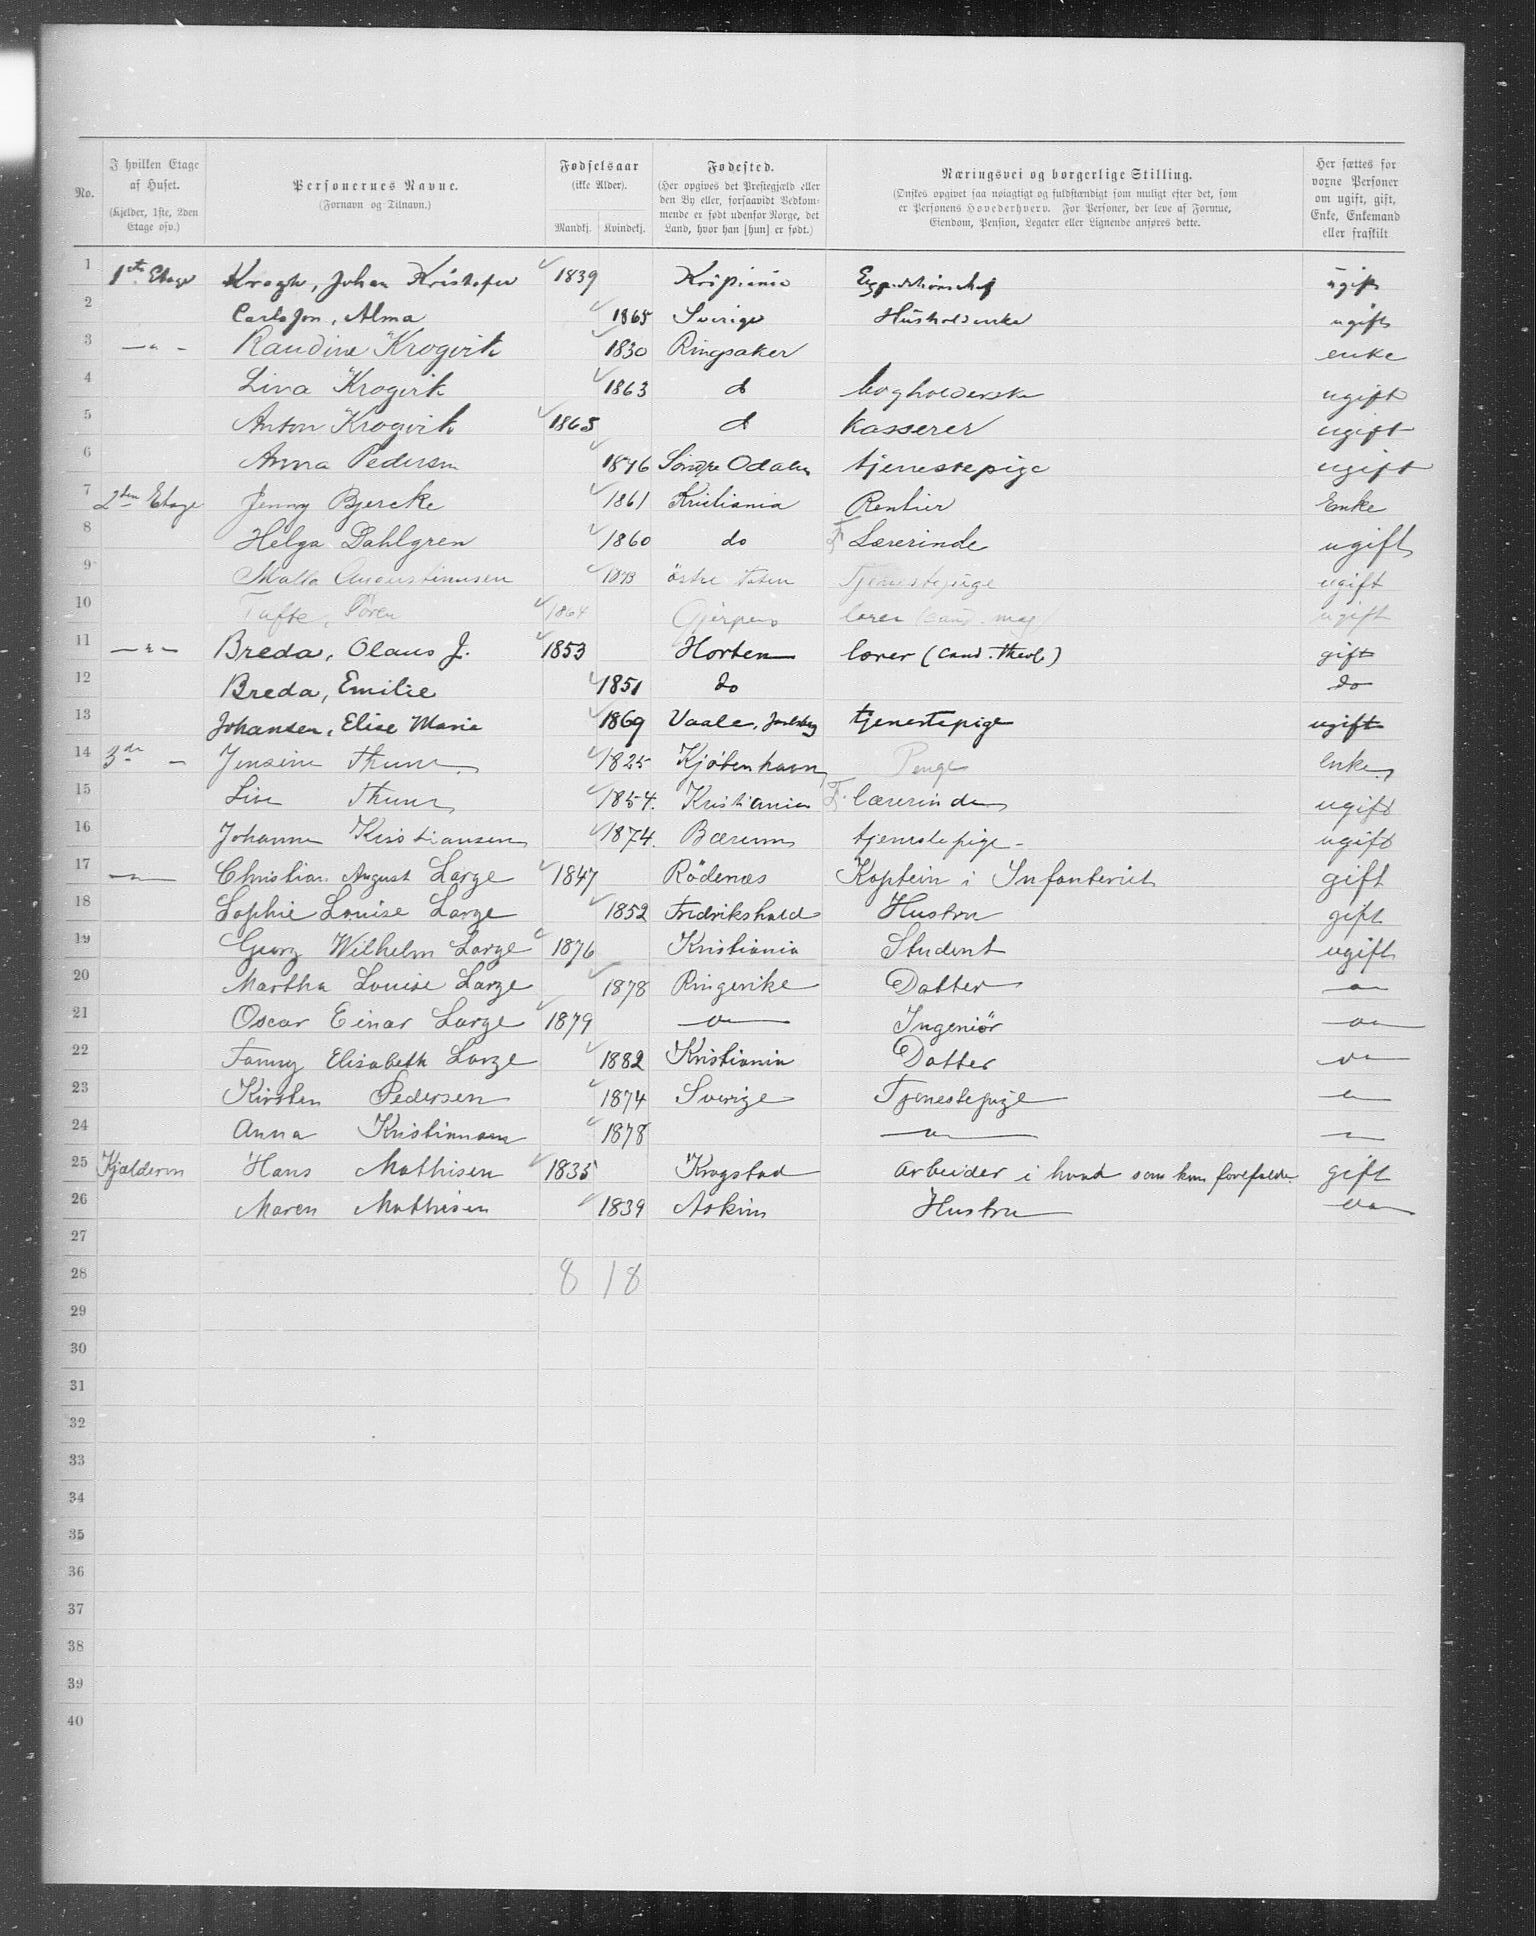 No. | I hvilken Etage af Huset. (Kjelder, 1ste, 2den Etage osv.) | Personernes Navne. (Fornavn og Tilnavn.) | Fødselsaar (ikke Alder). Mandkj. Kvindekj. | Fødested. (Her opgives det Prestegjæld eller den By eller, forsaavidt Vedkommende er født udenfor Norge, det Land, hvor han [hun] er født.) | Næringsvei og borgerlige Stilling. (Ønskes opgivet saa nøiagtigt og fuldstændigt som muligt efter det, som er Personens Hovederhverv. For Personer, der leve af Formue, Eiendom, Pension, Legater eller Lignende anføres dette. | Her sættes for voxne Personer om ugift, gift, Enke, Enkemand eller fraskilt
1 1ste Etage Krogh, Johan Kristofer 1839 Kristiania Expeditionschef ugift
2 Carlsson, Alma 1865 Sverige Husholderske ugift
3 — " — Randine Krogvik 1830 Ringsaker enke
4 Lina Krogvik 1863 d bogholderske ugift
5 Anton Krogvik 1865 d Kasserer ugift
6 Anna Pedersen 1876 Søndre Odalen tjenestepige ugift
7 2den Etage Jenny Bjercke 1861 Kristiania Rentier Enke
8 Helga Dahlgren 1860 do F Lærerinde ugift
9 Augustinusen 1873 østre Toten Tjenestepige ugift
10 Tufte, Søren 1864 Gjerpen lærer (cand. mag) ugift
11 — " — Breda, Olaus J. 1853 Horten lærer (cand. theol.) gift
12 Breda, Emilie 1851 do do
13 Johansen, Elise Marie 1869 Vaale, Jarlsberg tjenestepige ugift
14 3de — Jensine Thune 1825 Kjøbenhavn Penge Enke
15 Lise Thune 1854. Kristiania F. lærerinde ugift
16 Johanne Kristiansen 1874. Bærum tjenestepige - ugift
17 — " — Christian August Lorge 1847 Rödenæs Kaptein i Infanteriet gift
18 Sophie Louise Lorge 1852 Fredrikshald Hustru gift
19 Georg Wilhelm Lorge 1876 Kristiania Student ugift
20 Martha Louise Lorge 1878 Ringerike Datter — " —
21 Oscar Einar Lorge 1879 — " — Ingeniör — " —
22 Fanny Elisabeth Lorge 1882 Kristiania Datter — " —
23 Kirsten Pedersen 1874 Sverige Tjenestepige — " —
24 Anna Kristiansen 1878 — " — — " —
25 Kjælderen Hans Mathisen 1835 Krogstad arbeider i hvad som kan forefalde gift
26 Maren Mathisen 1839 Askim Hustru — " —
27
28 8 18
29
30
31
32
33
34
35
36
37
38
39
40